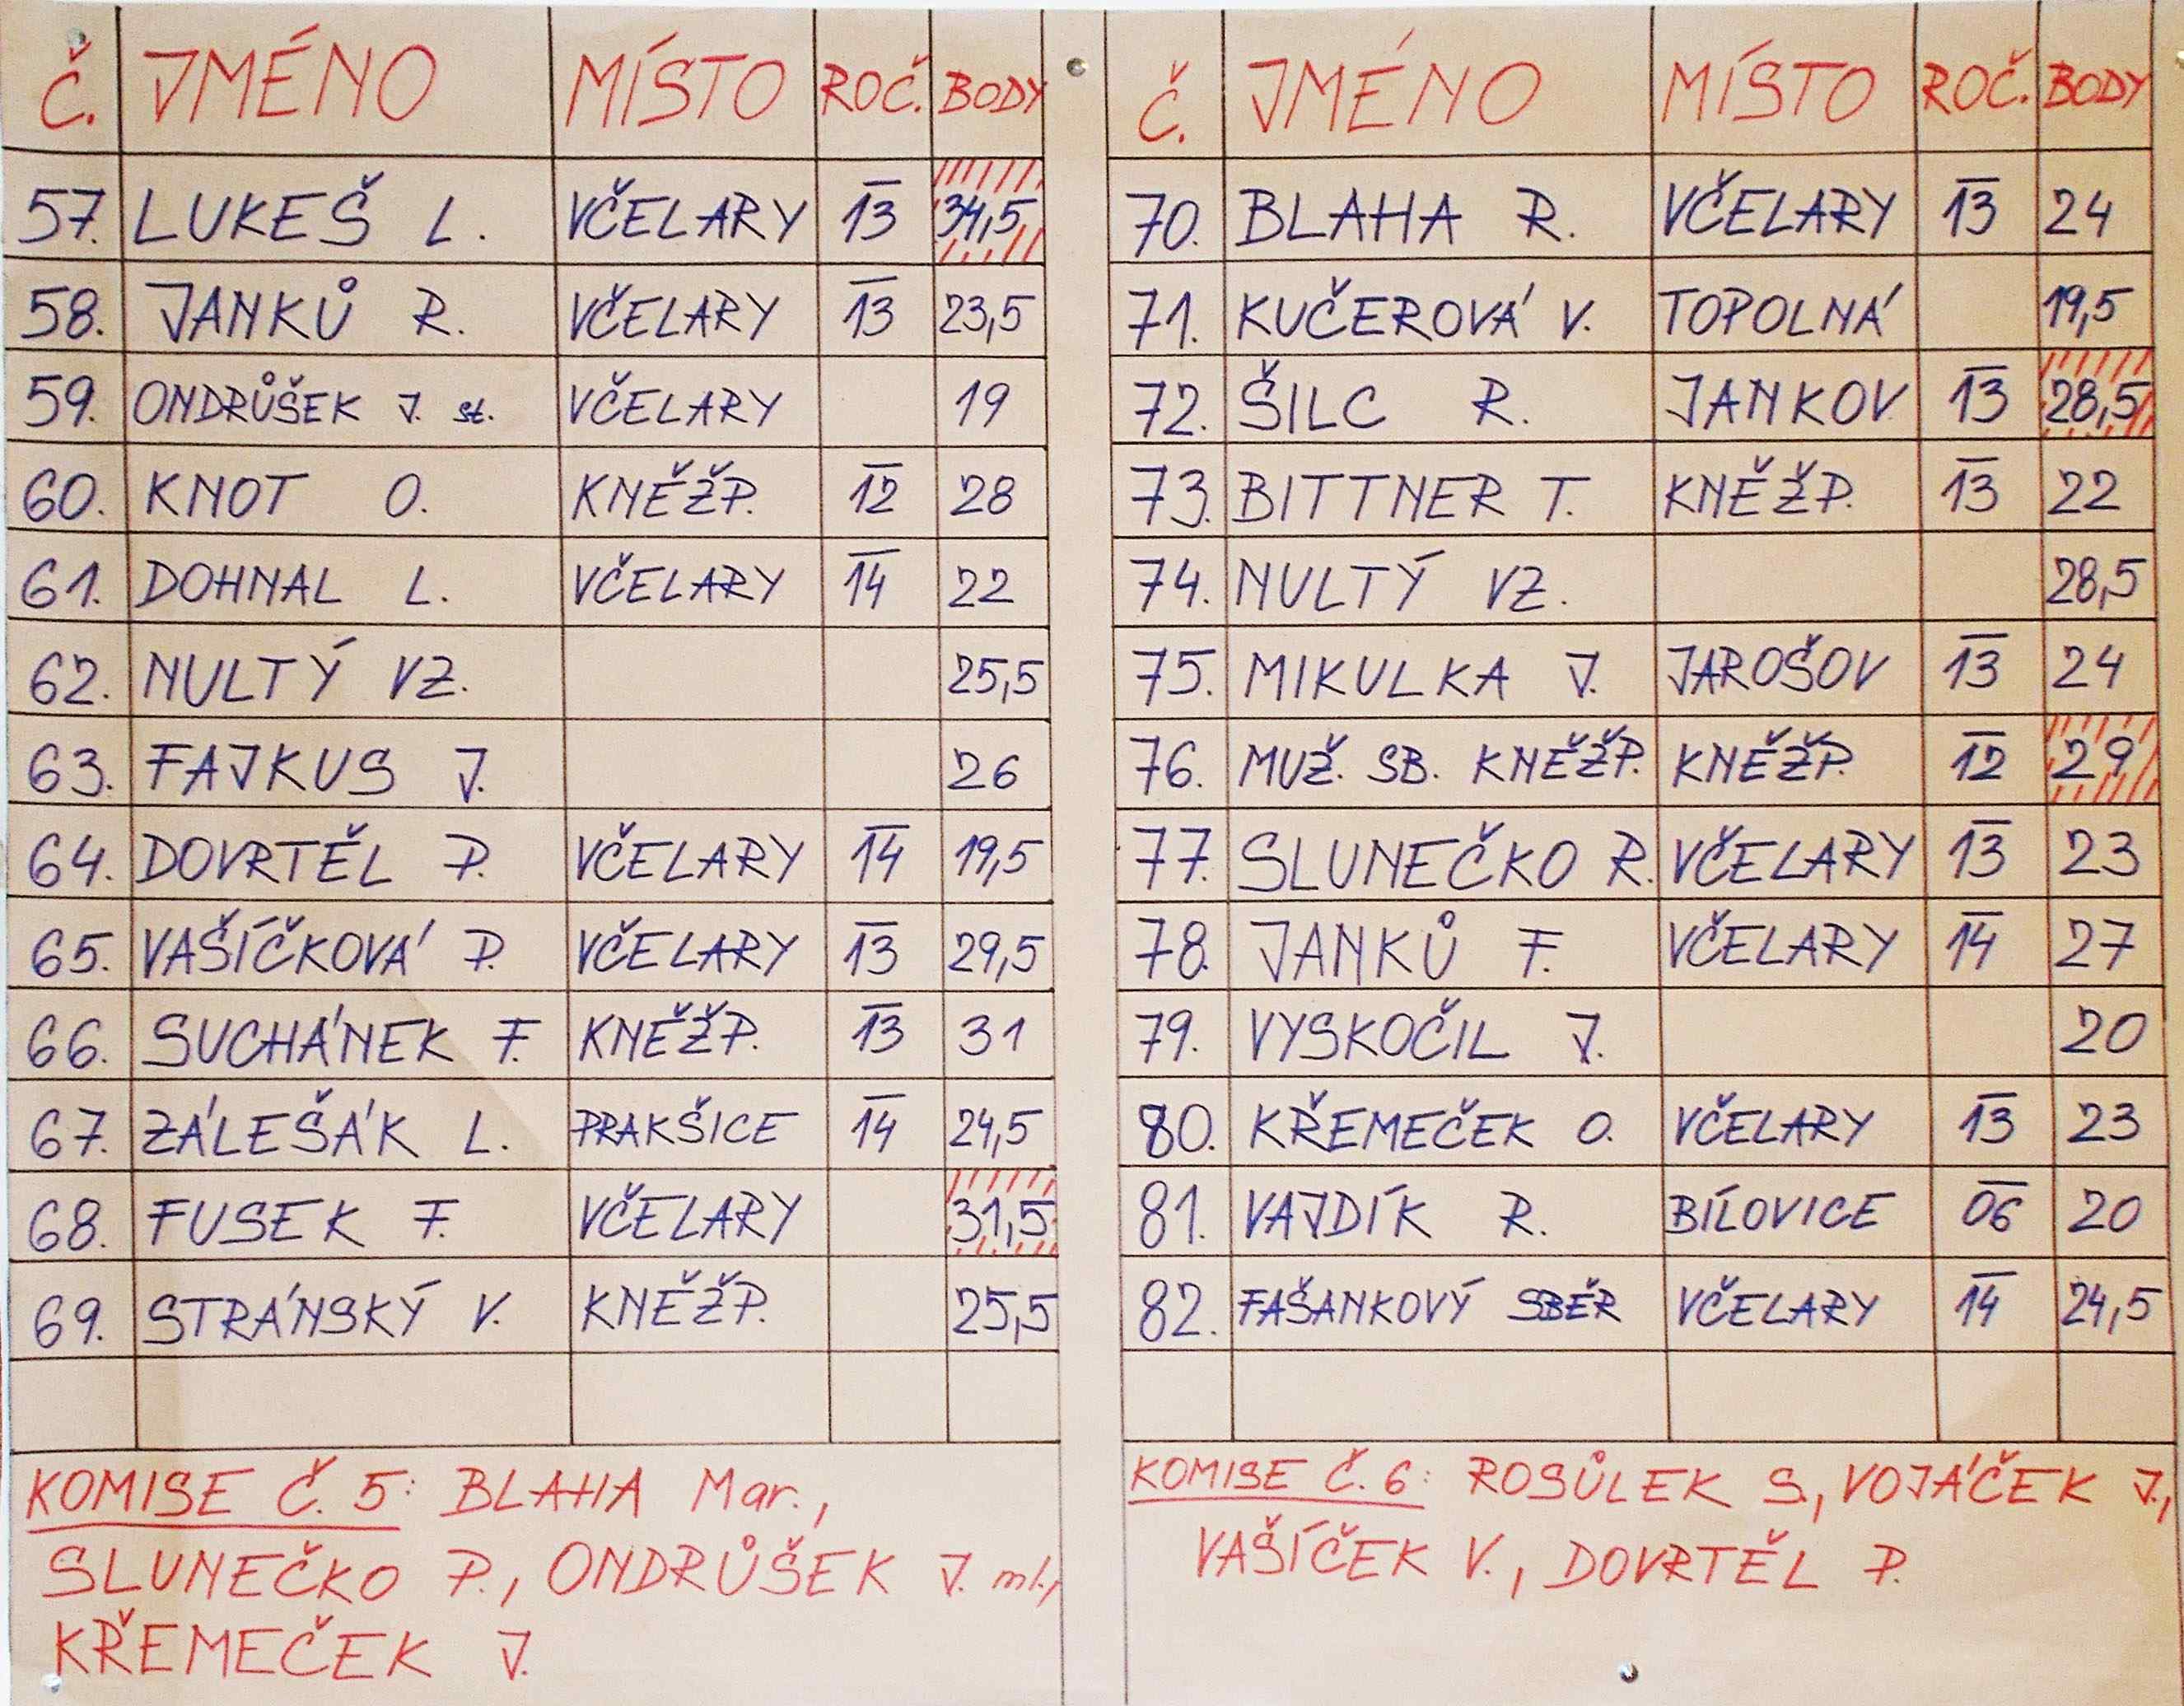 Č. JMÉNO MÍSTO ROČ. BODY
57. LUKEŠ L. VČELARY 13 34,5
58. JANKŮ R. VČELARY 13 23,5
59. ONDRŮŠEK J. st. VČELARY 19
60. KNOT O. KNĚŽP. 12 28
61. DOHNAL L. VČELARY 14 22
62. NULTÝ VZ. 25,5
63. FAJKUS J. 26
64. DOVRTĚL P. VČELARY 14 19,5
65. VAŠÍČKOVÁ P. VČELARY 13 29,5
66. SUCHÁNEK F. KNĚŽP. 13 31
67. ZÁLEŠÁK L. PRAKŠICE 14 24,5
68. FUSEK F. VČELARY 31,5
69. STRÁNSKÝ V. KNĚŽP. 25,5
KOMISE Č. 5: BLAHA Mar.,
SLUNEČKO P., ONDRŮŠEK J. ml.,
KŘEMEČEK J.
Č. JMÉNO MÍSTO ROČ. BODY
70. BLAHA R. VČELARY 13 24
71. KUČEROVÁ V. TOPOLNÁ 19,5
72. ŠILC R. JANKOV 13 28,5
73. BITTNER T. KNĚŽP. 13 22
74. NULTÝ VZ. 28,5
75. MIKULKA J. JAROŠOV 13 24
76. MUŽ. SB. KNĚŽP. KNĚŽP. 12 29
77. SLUNEČKO R. VČELARY 13 23
78. JANKŮ F. VČELARY 14 27
79. VYSKOČIL J. 20
80. KŘEMEČEK O. VČELARY 13 23
81. VAJDÍK R. BÍLOVICE 06 20
82. FAŠANKOVÝ SBĚR VČELARY 14 24,5
KOMISE Č. 6: ROSŮLEK S., VOJÁČEK J.,
VAŠÍČEK V., DOVRTĚL P.